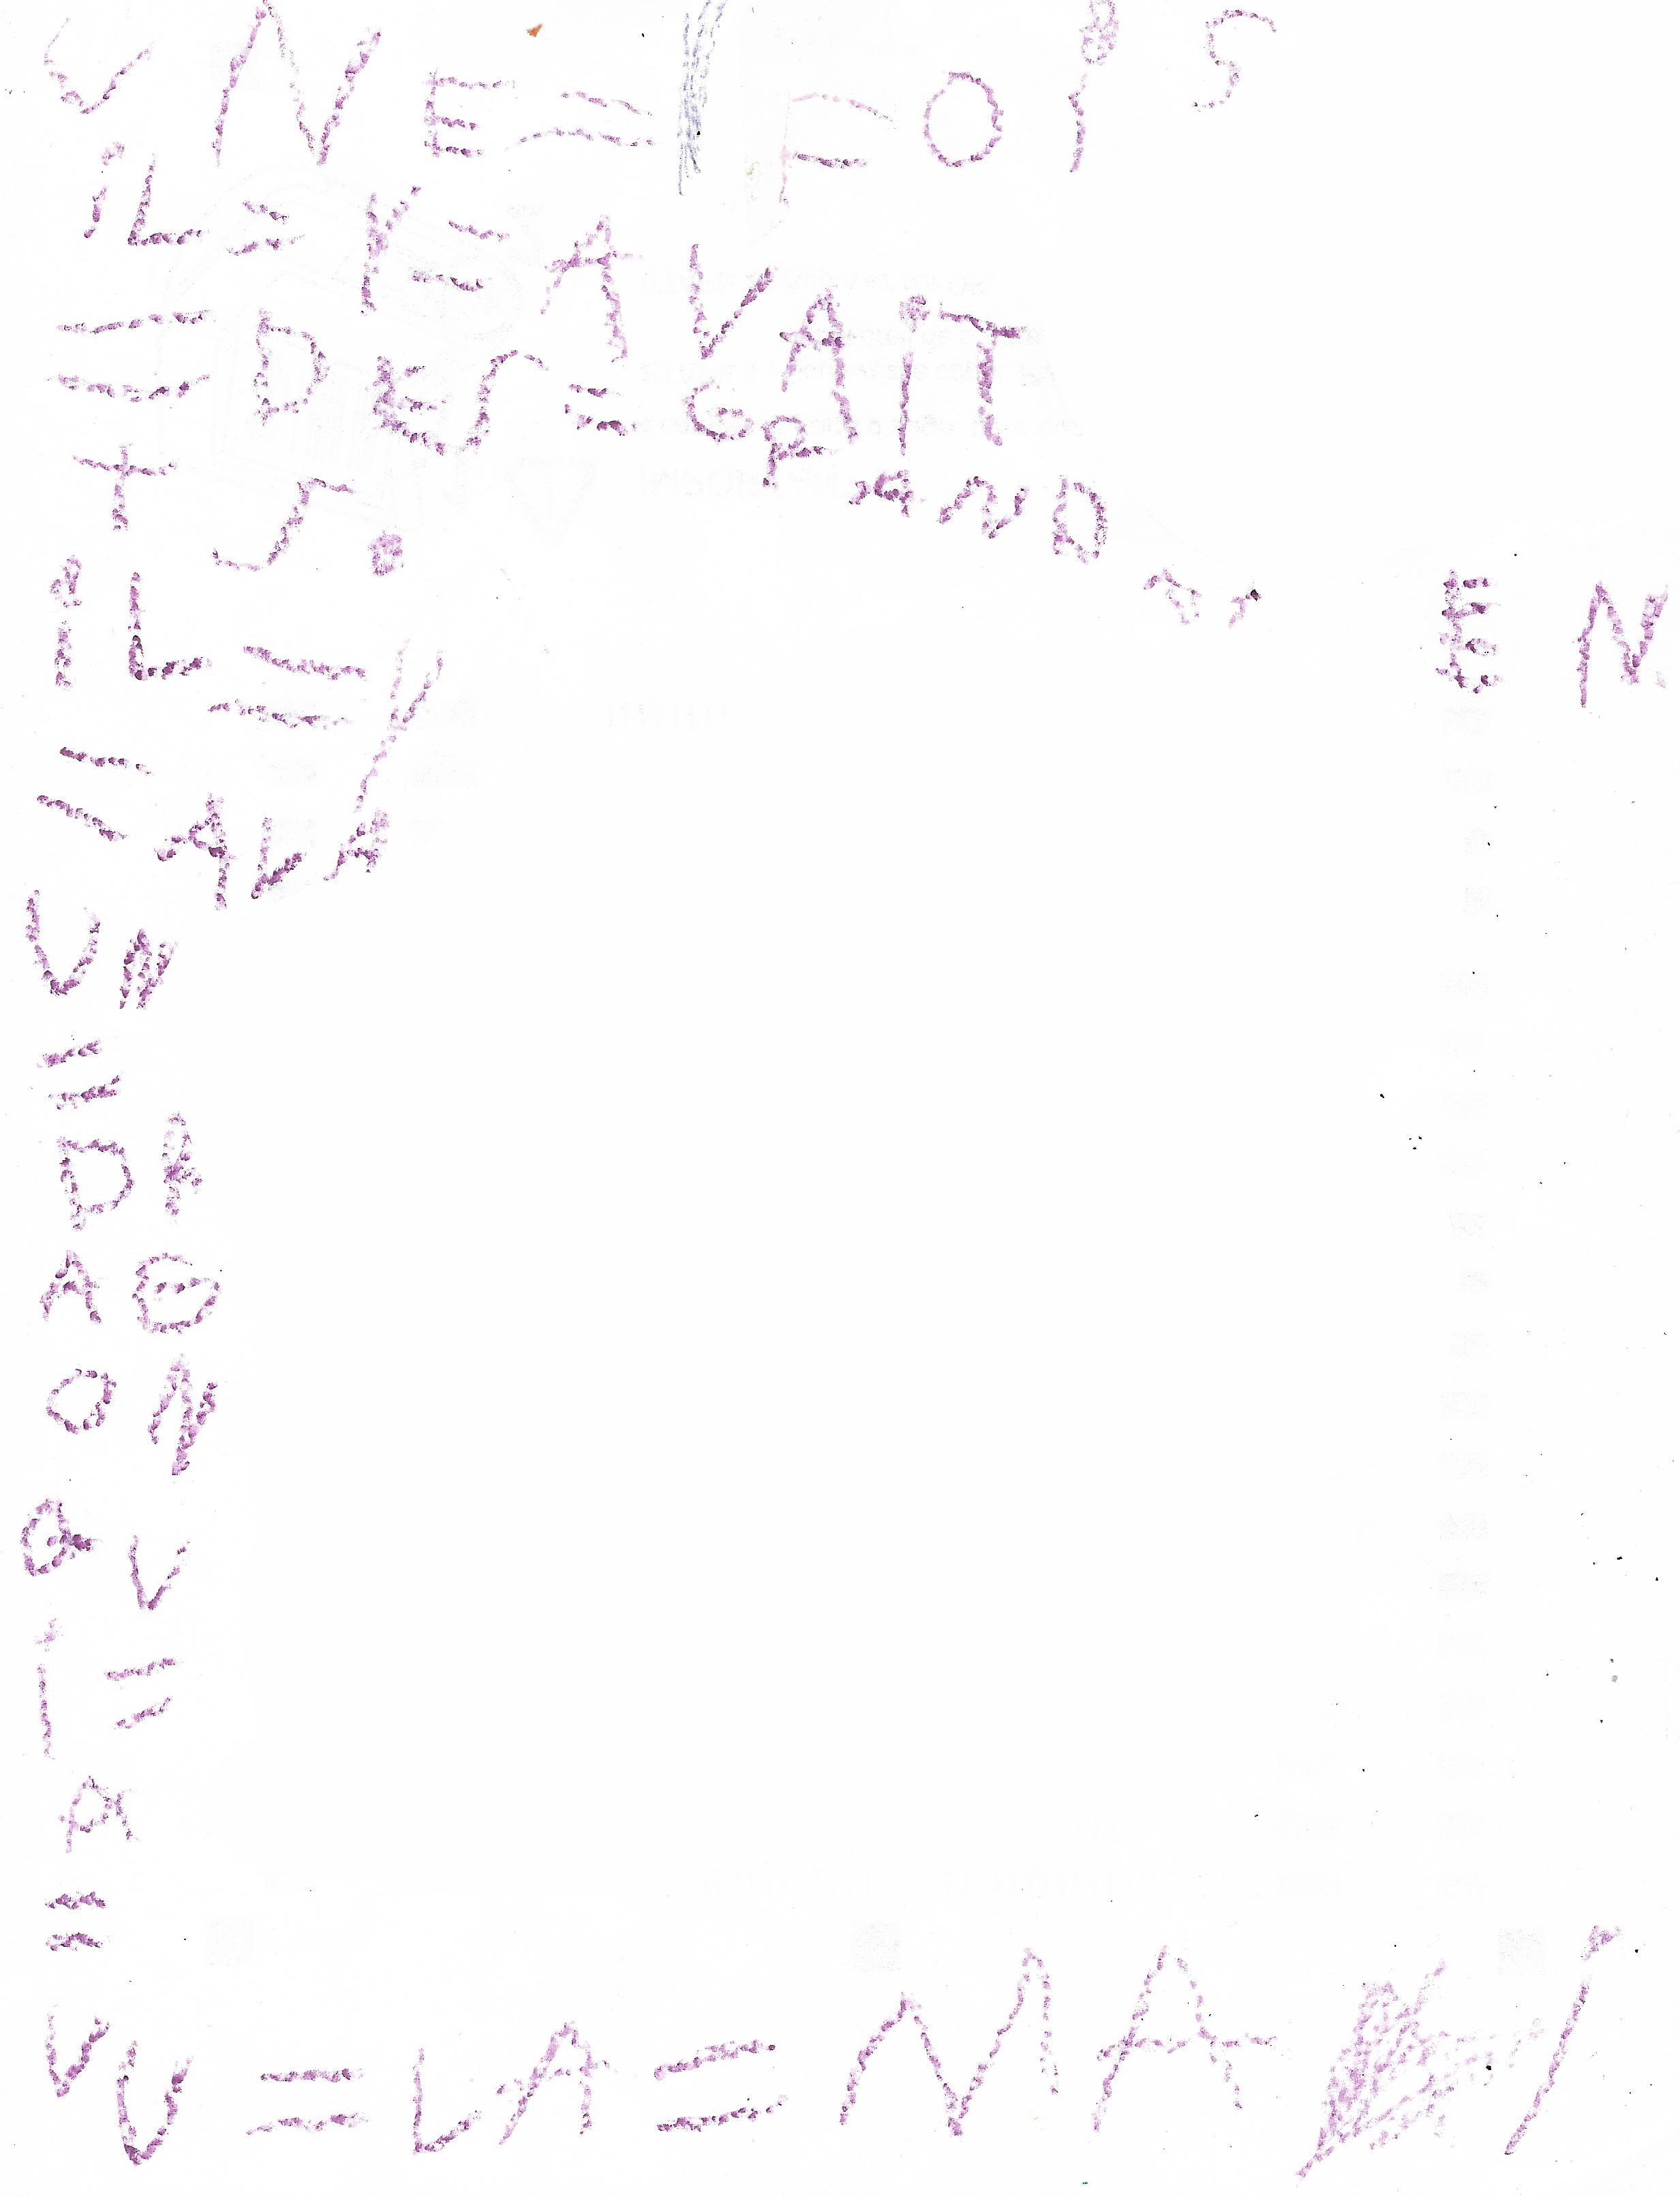 UNE=FOIS
IL=Y=AVAIT
=DES=GRAND
TS.
EN
IL=Y
=ALA
UN
=
DR
AG
ON
QU
I=
A
=
VU=LA=MAI